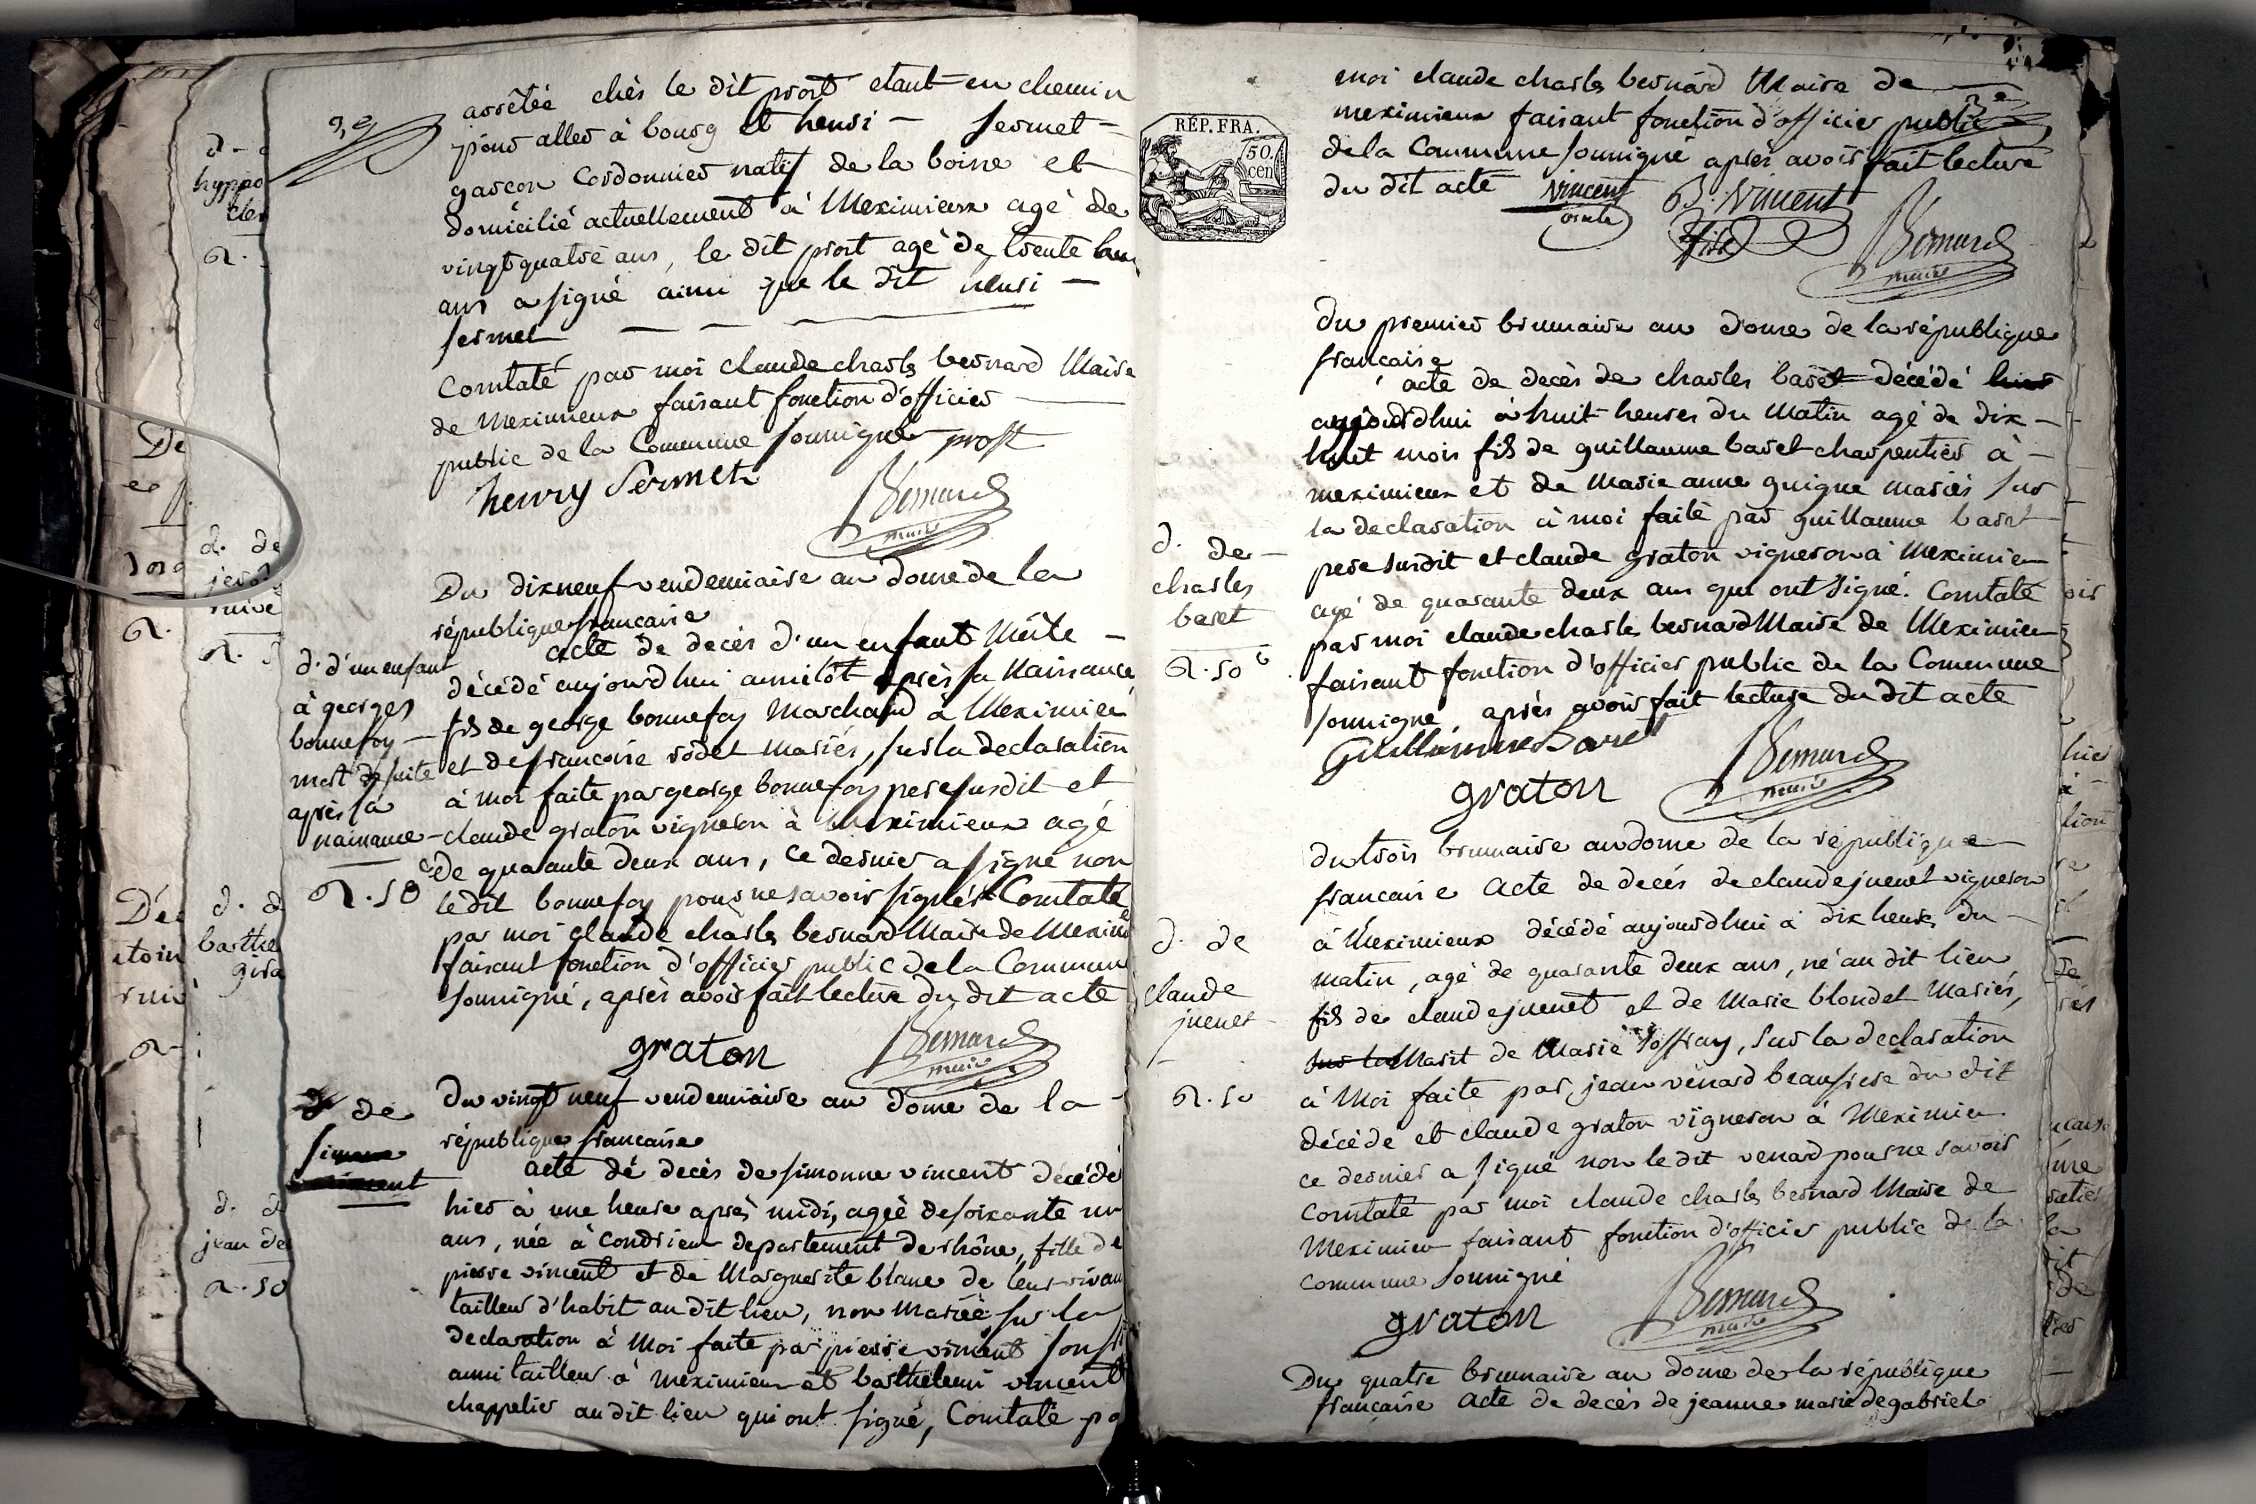 arrêtée chès le dit prost etant en chemin
pour aller à bourg et henri — sermet —
garcon cordonnier natif de la boisse et
domicilié actuellement à Meximieux agé de
vingt quatre ans, le dit prost agé de trente
ans a signé ainsi que le dit henri —
sermet
Constaté par moi claude charles bernard Maire
de Meximieux faisant fonction d'officier
public de la Commune soussigné prost
henry Sermet
Bernard
maire
Du dix neuf vendemiaire an douze de la
république francaise
acte de decès d'un enfant Mâle —
décédé aujourdhui aussitôt après sa Naissance
fils de george bonnefoy Marchand à Meximieu
et de francoise rodet mariés, sur la declaration
à moi faite par george bonnefoy pere susdit et
claude graton vigneron à Meximieux agé
de quarante deux ans, ce dernier a signé non
le dit bonnefoy pour ne savoir signer Constaté
par moi claude charles bernard Maire de Meximieu
faisant fonction d'officier public de la Commune
soussigné, après avoir fait lecture du dit acte
graton
Bernard
maire
d. d'un enfant
à georges
bonnefoy —
mort de suite
après sa
naissance —
Du vingt neuf vendemiaire an douze de la
république francaise
acte de decès de simonne vincent décédé
hier à une heure après midi, agée de soixante un
ans, née à Condrieu departement de rhône, fille de
pierre vincent et de Marguerite blanc de leur vivant
tailleur d'habit au dit lieu, non mariée sur la
declaration à Moi faite par pierre vincent son
aussi tailleur à meximieu et barthelemi vincent
chappelier au dit lieu qui ont signé, Constaté pa
de
simonne
vincent
RÉP. FRA.
50.
cen
moi claude charles bernard Maire de
meximieux faisant fonction d'officier public
de la Commune soussigné après avoir fait lecture
du dit acte vincent B. Vincent
fils
Bernard
maire
du premier brumaire an douze de la république
francaise
acte de decès de charles baret décédé hier
aujourd'hui à huit heures du Matin agé de dix —
huit mois fils de guillaume baret charpentier à —
meximieux et de Marie anne guigue mariés sur
la declaration à moi faite par guillaume baret
pere susdit et claude graton vigneron à Meximieu
agé de quarante deux ans qui ont signé. Constaté
par moi claude charles bernard Maire de Meximieu
faisant fonction d'officier public de la Commune
soussigné, après avoir fait lecture du dit acte
Guillaume Baret
graton
Bernard
maire
d. de —
charles
baret
du trois brumaire an douze de la république
francaise Acte de decès de claude juenet vigneron
à Meximieux décédé aujourdhui à dix heures du —
matin, agé de quarante deux ans, né au dit lieu
fils de claude juenet et de Marie blondet Mariés,
sur la Marit de Marie Joffray, sur la declaration
à Moi faite par jean venard beaufrere du dit
décédé et claude graton vigneron à Meximieu
ce dernier a signé non le dit venard pour ne savoir
Constaté par moi claude charles bernard Maire de
Meximieu faisant fonction d'officier public de la
commune soussigné
graton
Bernard
maire
d. de
claude
juenet
Du quatre brumaire an douze de la république
francaise Acte de decès de jeanne marie degabriel